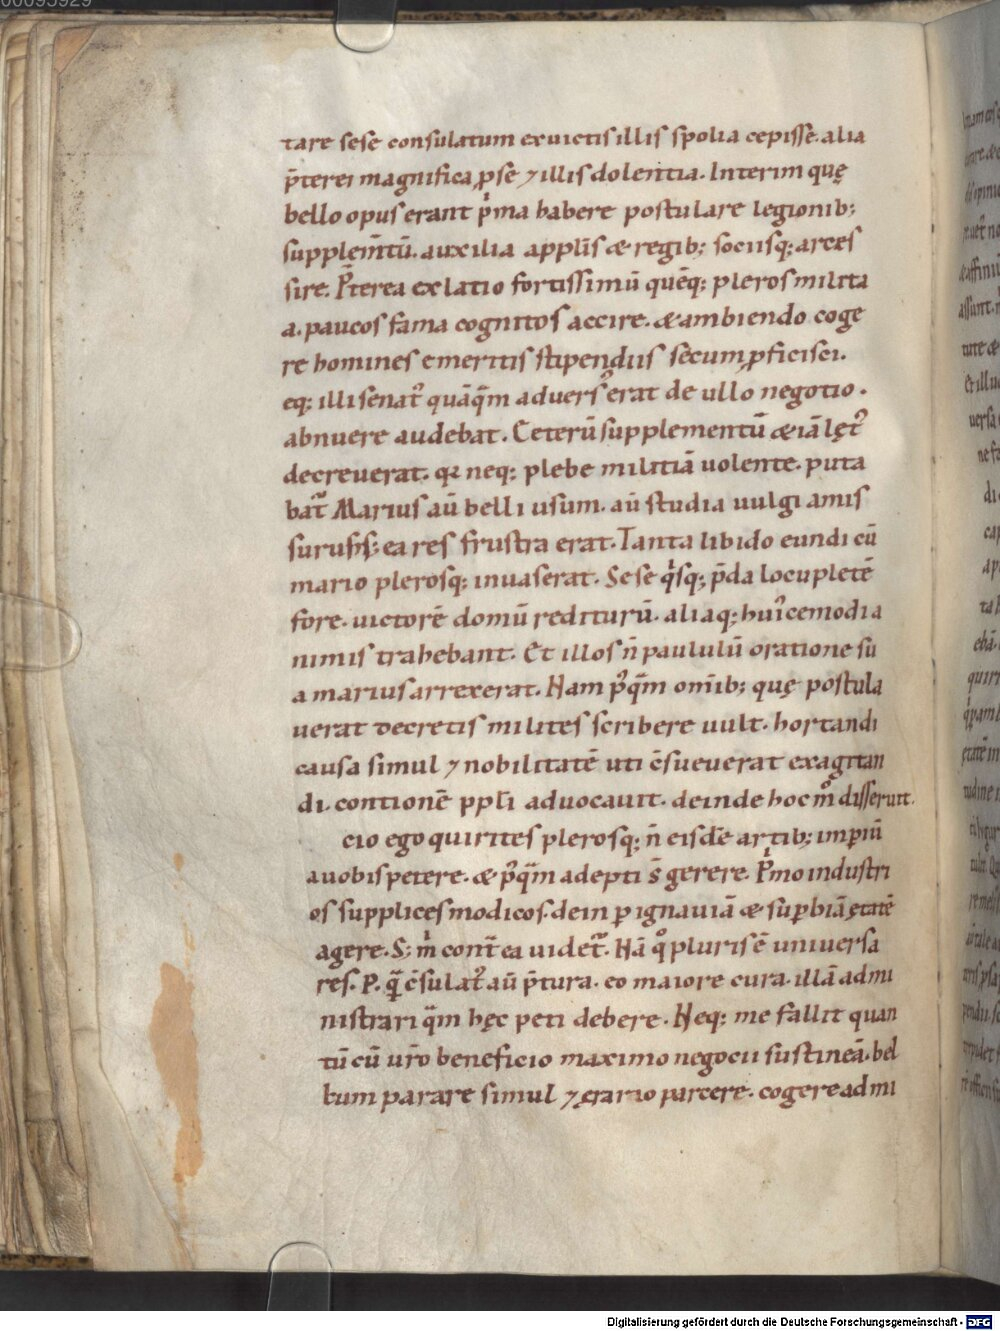 00095929
tare sese consulatum ex victis illis spolia cepisse. alia
p̄terei magnifica ꝓse ⁊ illis dolentia. Interim quę
bello opus erant pͥma habere postulare legionib;
supplem̄tū. auxilia appl̄is & regib; sociisq; arces
sire. P̄terea ex latio fortissimū quēq; pleros milita
a. paucos fama cognitos accire. & ambiendo coge
re homines emeritis stipendiis secum ꝓficisci.
eq; illi senat᷒ quāq̄m aduers᷒ erat de ullo negotio.
abnuere audebat. Ceterū supplementū & iā lęt᷒
decreuerat. qꝛ neq; plebe militiā uolente. puta
bat᷑ Marius aū belli usum. aū studia uulgi amis
surus; ea res frustra erat. Tanta libido eundi cū
mario plerosq; inuaserat. Sese qͥsq; p̄da locupletē
fore. uictorē domū rediturū. aliaq; huicemodi a
nimis trahebant. Et illos n̄ paululū oratione su
a marius arrexerat. Nam pꝰq̄m omīb; quę postula
uerat decretis milites scribere uult. hortandi
causa simul ⁊ nobilitatē uti c̄sueuerat exagitan
di. contionē ppl̄i aduocauit. deinde hoc mͦ disseruit.
cio ego quirites plerosq; n̄ eisdē artib; imꝑiū
a uobis petere. & pꝰq̄m adepti s̄ gerere. Pͥmo industri
os supplices modicos. dein ꝑ ignauiā & suꝑbiā ętatē
agere. S; mͥ cont̄ ea uidet᷑. Nā qͦ pluris ē uniuersa
res. P. q̄ c̄sulat᷒ aū p̄tura. eo maiore cura. illā admi
nistrari q̄m hęc peti debere. Neq; me fallit quan
tū cū ur̄o beneficio maximo negocii sustineā. bel
lum parare simul ⁊ ęrario parcere. cogere ad mi
Digitalisierung gefördert durch die Deutsche Forschungsgemeinschaft - DFG